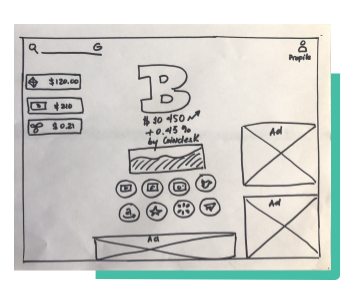 G
Profile
$120.00
$ 210
$ 0.21
B
$ 10 450
+ 0.45 %
by Coindesk
Ad
Ad
a
Ad